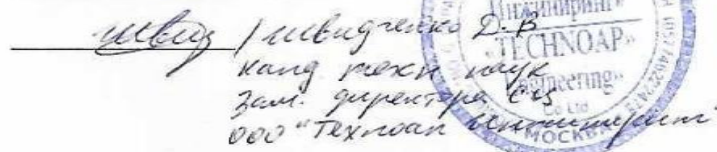 / Швидченко Д. В
канд техн наук
Зам. директора СЦ
ООО "Техноап Инжиниринг"
Инжиниринг"
"TECHNOAP"
Engineering"
Co Ltd
МОСКВА